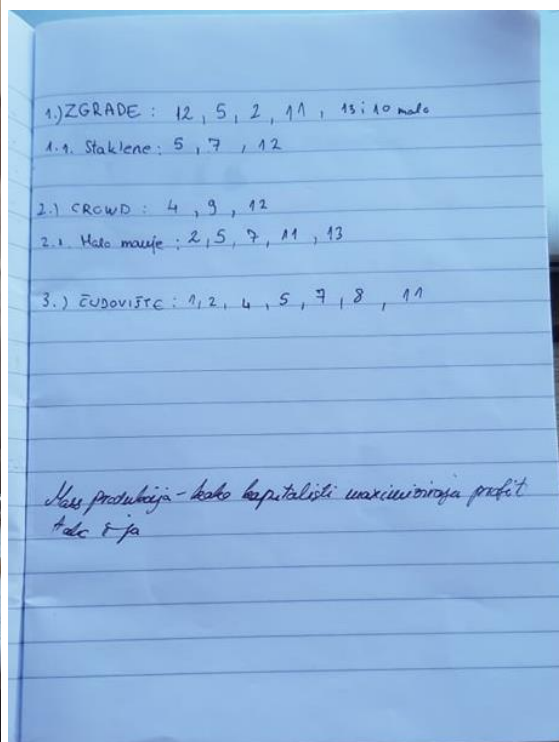 1.) ZGRADE : 12 , 5 , 2 , 11 , 13 i 10 malo
1.1. Staklene : 5 , 7 , 12
2.) CROWD : 4 , 9 , 12
2.1. Malo manje : 2 , 5 , 7 , 11 , 13
3.) ČUDOVIŠTE : 1 , 2 , 4 , 5 , 7 , 8 , 11
Mass produkcija - kako kapitalisti maximiziraju profit